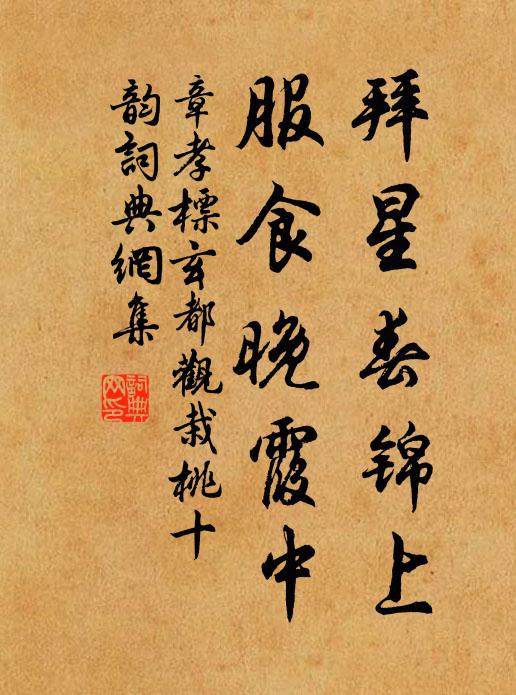 拜星春錦上
服食晚霞中
章孝標玄都觀栽桃十
韵詞典網集
詞典
网印